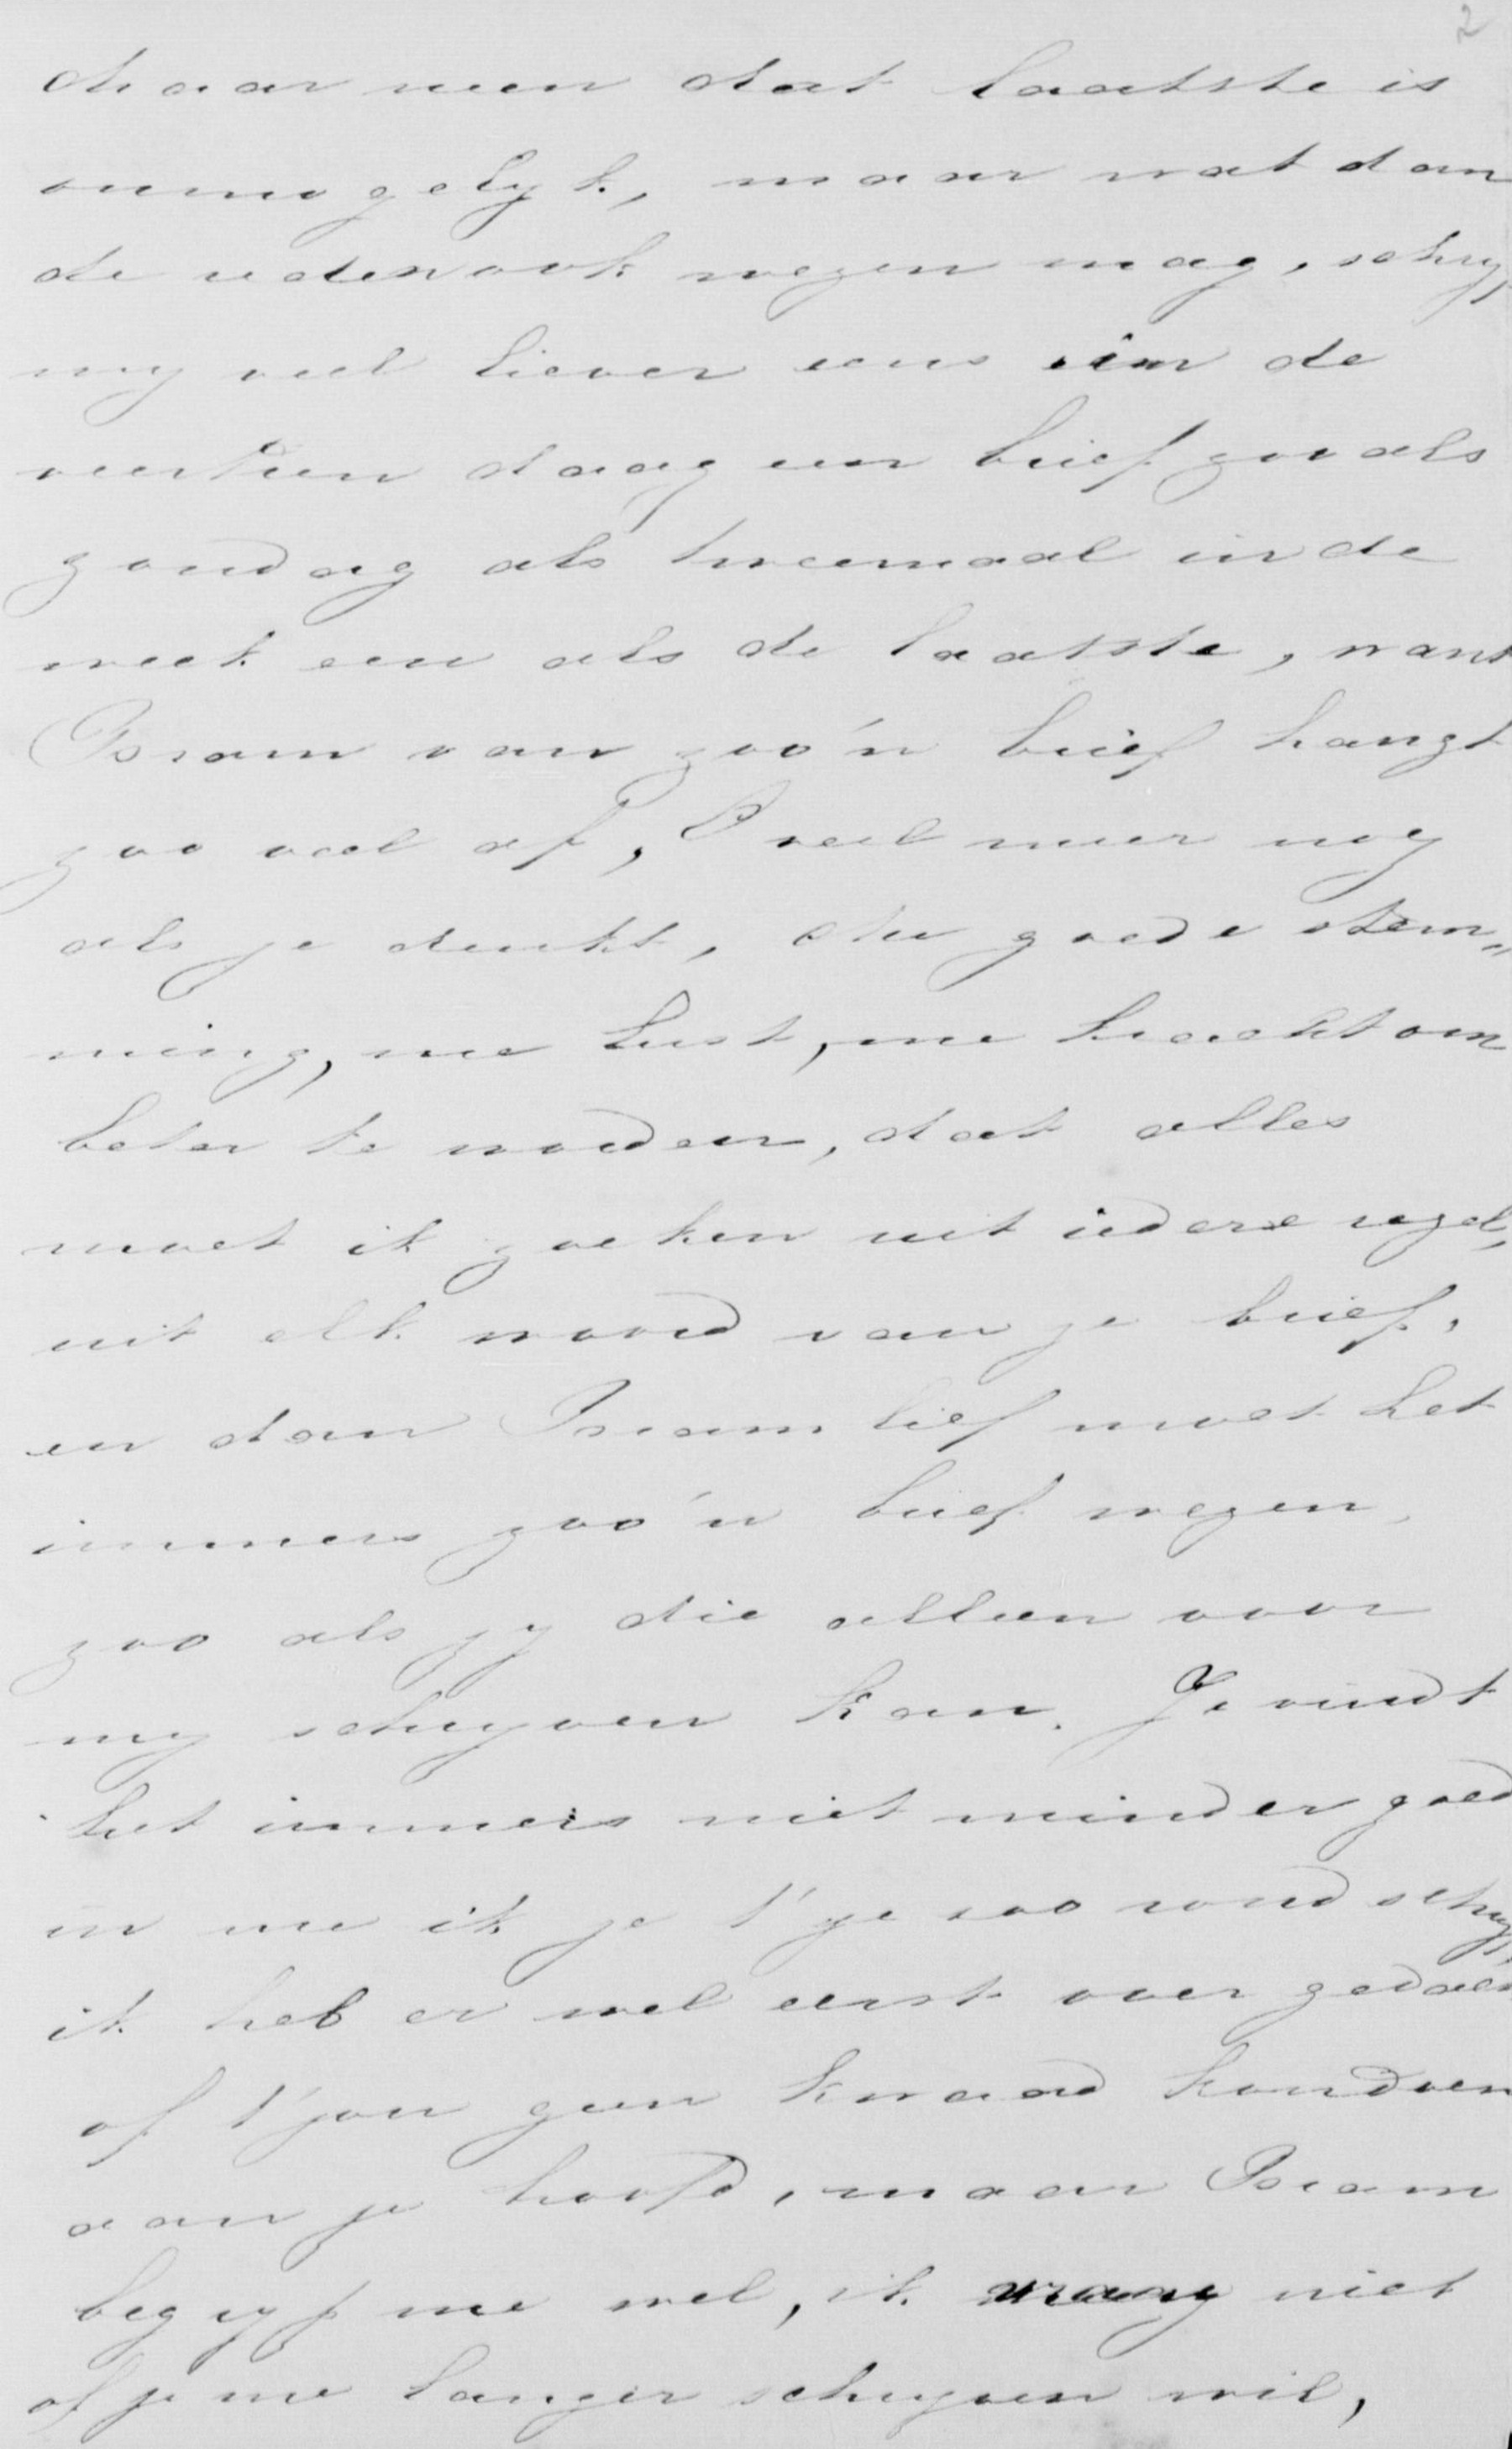 2
Maar neen dat laatste is
onmogelyk, maar wat dan
de reden ook wezen mag, schryf
my veel liever eens in de
veertien daag een brief zooals
zondag als tweemaal in de
week een als de laatste, want
Bram van zoo'n brief hangt
zoo veel af, O veel meer nog
als je denkt, me goede stem„
ming, me lust, me kracht om
beter te worden, dat alles
moet ik zoeken uit iedere regel,
uit elk woord van je brief,
en dan Bram lief moet het
immers zoo'n brief wezen,
zoo als jy die alleen voor
my schryven kan. Je vindt
het immers niet minder goed
in me ik je 't je zoo rond schryf,
ik heb er wel eerst over gedacht
of 't jou geen kwaad kon doen
aan je hoofd, maar Bram
begryp me wel, ik vraag niet
of je me langer schryven wil,